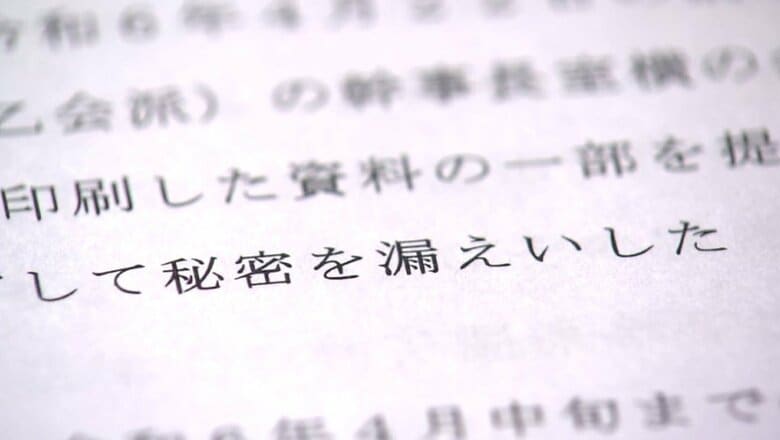 令和6年4月22日の
乙会派)の幹事長室横の
印刷した資料の一部を提
して秘密を漏えいした
令和6年4月中旬まで